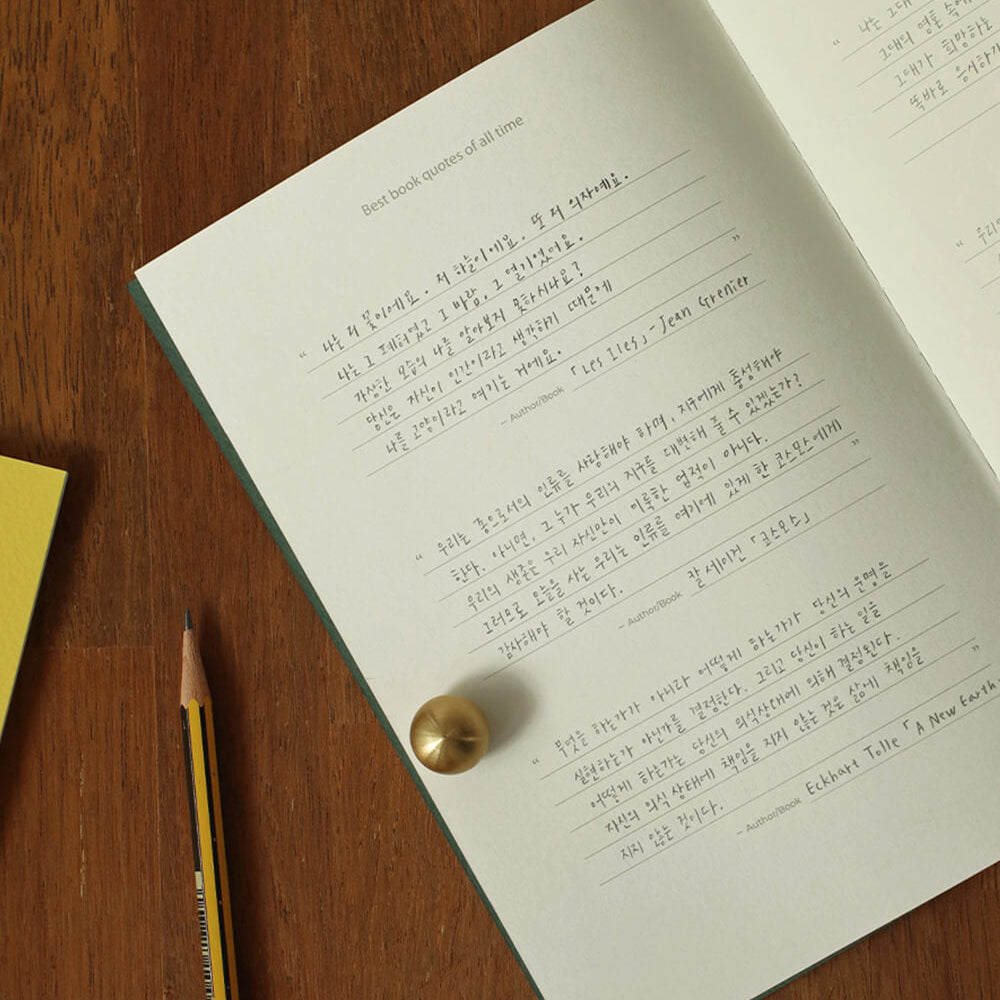 Best book quotes of all time
“ 나는 저 꽃이에요. 저 하늘이에요. 또 저 의자예요.
나는 그 폐허였고 그 바람, 그 열기였어요.
가장한 모습의 나를 알아보지 못하시나요?
당신은 자신이 인간이라고 생각하기 때문에
나를 고양이라고 여기는 거예요. ”
– Author/Book 「Les Iles」 - Jean Grenier
“ 우리는 종으로서의 인류를 사랑해야 하며, 지구에게 충성해야
한다. 아니면, 그 누가 우리의 지구를 대변해 줄 수 있겠는가?
우리의 생존은 우리 자신만이 이룩한 업적이 아니다.
그러므로 오늘을 사는 우리는 인류를 여기에 있게 한 코스모스에게
감사해야 할 것이다. ”
– Author/Book 칼 세이건 「코스모스」
“ 무엇을 하는가가 아니라 어떻게 하는가가 당신의 운명을
실현하는가 아닌가를 결정한다. 그리고 당신이 하는 일을
어떻게 하는가는 당신의 의식상태에 의해 결정된다.
자신의 의식 상태에 책임을 지지 않는 것은 삶에 책임을
지지 않는 것이다. ”
– Author/Book Eckhart Tolle 「A New Earth
“ 나는 그대
그대의 영혼 속에
그대가 희망하는
똑바로 응시하기
“ 우리